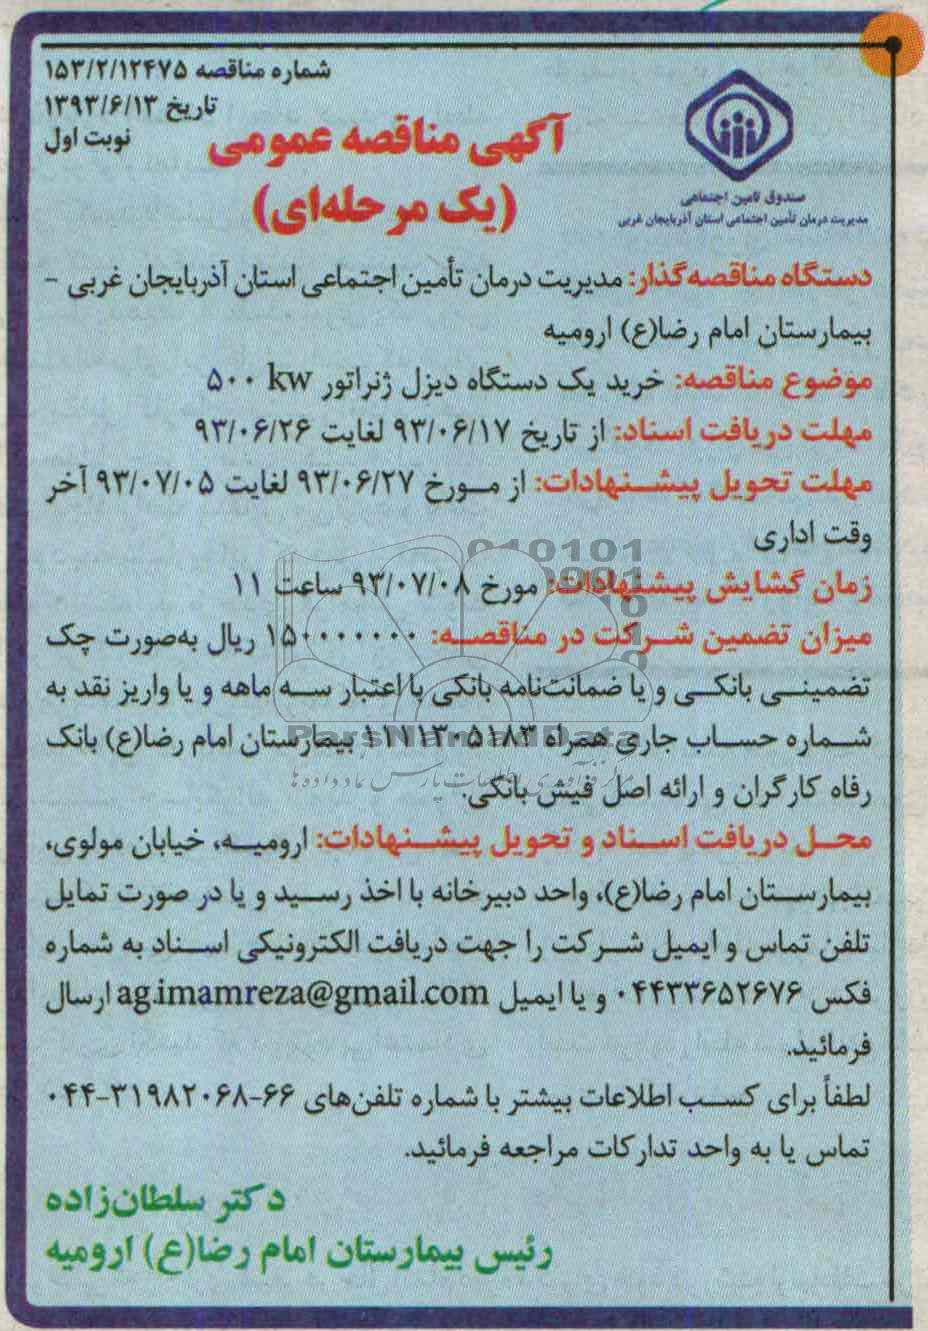 شماره مناقصه ۱۵۳/۲/۱۲۴۷۵
تاریخ ۱۳۹۳/۶/۱۳
نوبت اول
آگهی مناقصه عمومی
(یک مرحله‌ای)
صندوق تامین اجتماعی
مدیریت درمان تأمین اجتماعی استان آذربایجان غربی
دستگاه مناقصه‌گذار: مدیریت درمان تأمین اجتماعی استان آذربایجان غربی -
بیمارستان امام رضا(ع) ارومیه
موضوع مناقصه: خرید یک دستگاه دیزل ژنراتور ۵۰۰ kw
مهلت دریافت اسناد: از تاریخ ۹۳/۰۶/۱۷ لغایت ۹۳/۰۶/۲۶
مهلت تحویل پیشنهادات: از مورخ ۹۳/۰۶/۲۷ لغایت ۹۳/۰۷/۰۵ آخر
وقت اداری
زمان گشایش پیشنهادات: مورخ ۹۳/۰۷/۰۸ ساعت ۱۱
میزان تضمین شرکت در مناقصه: ۱۵۰۰۰۰۰۰۰ ریال به‌صورت چک
تضمینی بانکی و یا ضمانت‌نامه بانکی با اعتبار سه ماهه و یا واریز نقد به
شماره حساب جاری همراه ۱۱۱۱۳۰۵۱۸۳ بیمارستان امام رضا(ع) بانک
رفاه کارگران و ارائه اصل فیش بانکی.
محل دریافت اسناد و تحویل پیشنهادات: ارومیه، خیابان مولوی،
بیمارستان امام رضا(ع)، واحد دبیرخانه با اخذ رسید و یا در صورت تمایل
تلفن تماس و ایمیل شرکت را جهت دریافت الکترونیکی اسناد به شماره
فکس ۰۴۴۳۳۶۵۲۶۷۶ و یا ایمیل ag.imamreza@gmail.com ارسال
فرمائید.
لطفاً برای کسب اطلاعات بیشتر با شماره تلفن‌های ۶۶-۰۴۴-۳۱۹۸۲۰۶۸
تماس یا به واحد تدارکات مراجعه فرمائید.
دکتر سلطان‌زاده
رئیس بیمارستان امام رضا(ع) ارومیه
ParsNamadData